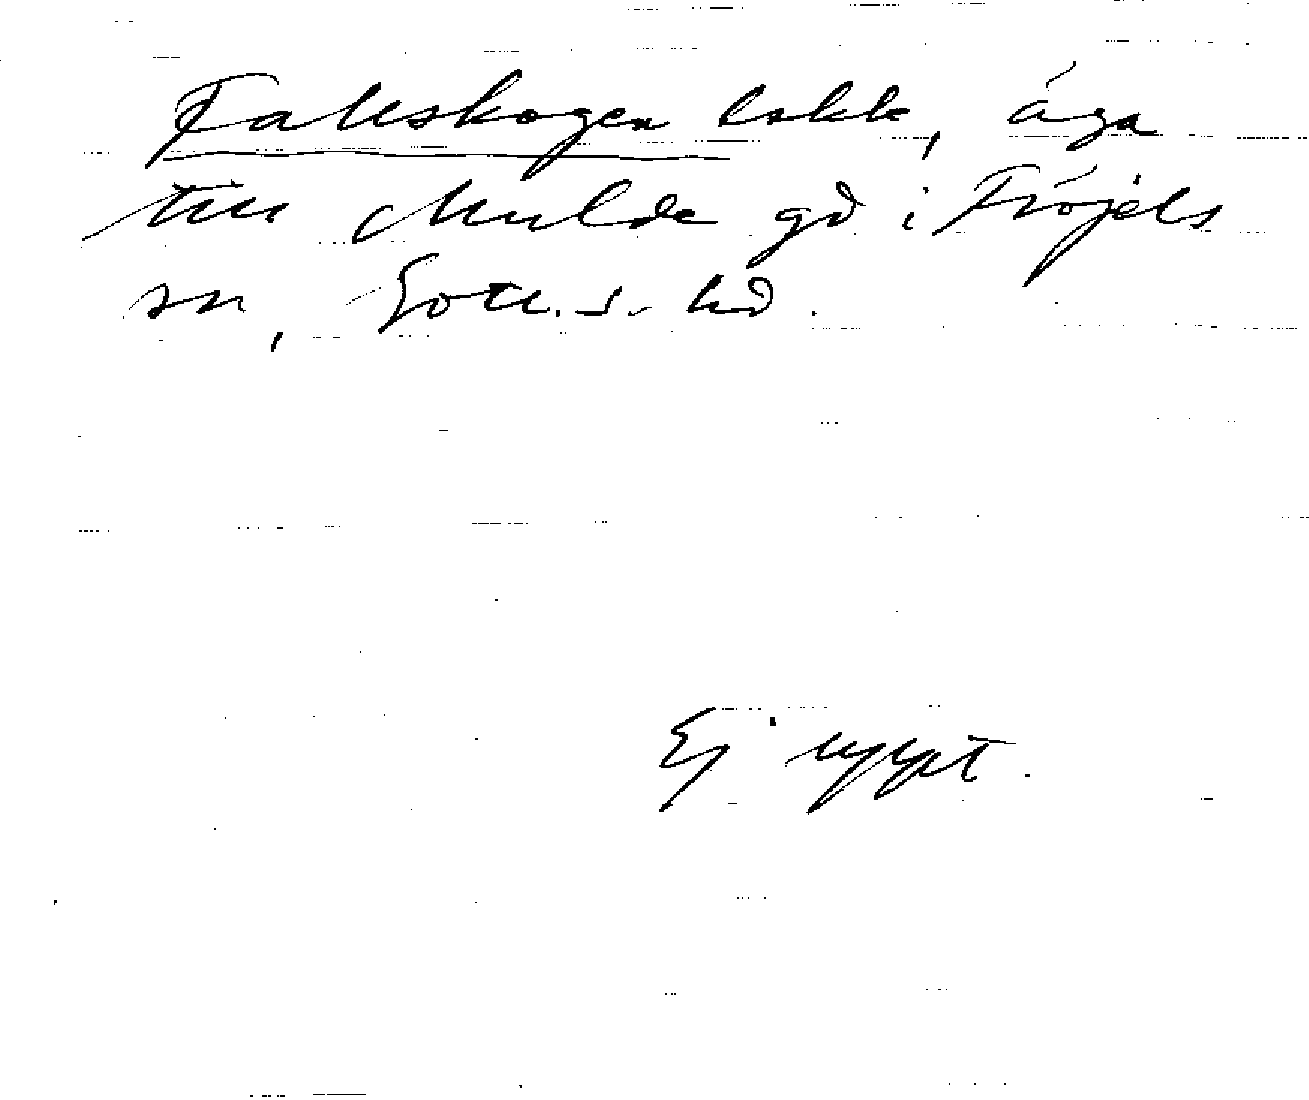 Fallskogen äga
till Mulde gd i Fröjels
sn, Gotl. s. hd.
Ej uppt.